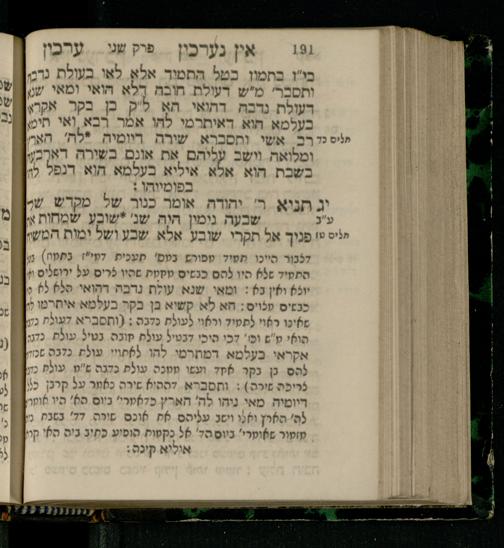 191 אין נערכין פרק שני ערכין
בי״ז בתמוז בטל התמיד אלא לאו בעולת נדבה
ותסבר׳ מ״ש דעולת חובה דלא הואי ומאי שנא
דעולת נדבה דהואי הא ל״ק בן בקר אקראי
בעלמא הוא דאיתרמי להו אמר רבא ואי תימא
רב אשי ותסברא שירה דיומיה *לה׳ הארץ
תלים כד
ומלואה וישב עליהם את אונם בשירה דארבעה
בשבת הוא אלא איליא בעלמא הוא דנפל להו
בפומייהו :
יג תניא ר׳ יהודה אומר כנור של מקדש של
ע״ב
שבעה נימין היה שנ׳ *שובע שמחות את
תלים טז
פניך אל תקרי שובע אלא שבע ושל ימות המשיח
התמיד שלא היו להם כבשים מחמת שהיו צרים על ירושלים ואין
יוצא ואין בא : ומאי שנא עולת נדבה דהואי הלא לא היו
כבשים מצוים : הא לא קשיא בן בקר בעלמא איתרמי להו
שאינו ראוי לתמיד וראוי לעולת נדבה : (ותסברא דעולת נדבה
הואי מ״ש וכו׳ דכי היכי דבטיל עולת חובה בטיל עולת נדבה
אקראי בעלמא דמתרמי להו לאתויי עולת נדבה שנזדמן
להם בן בקר אחד ועשו ממנה עולת נדבה ש״מ עולת נדבה
לריכה שירה) : ותסברא דההוא שירה נאמר על קרבן כלל
דיומיה מאי ניהו לה׳ הארץ כדאמרי׳ ביום הא׳ היו אומרים
לה׳ הארץ ואלו וישב עליהם את אונם שירה דד׳ בשבת
מזמור שאומרי׳ ביום הד׳ אל נקמות הופיע כתיב ביה האי קרא
איליא קינה :